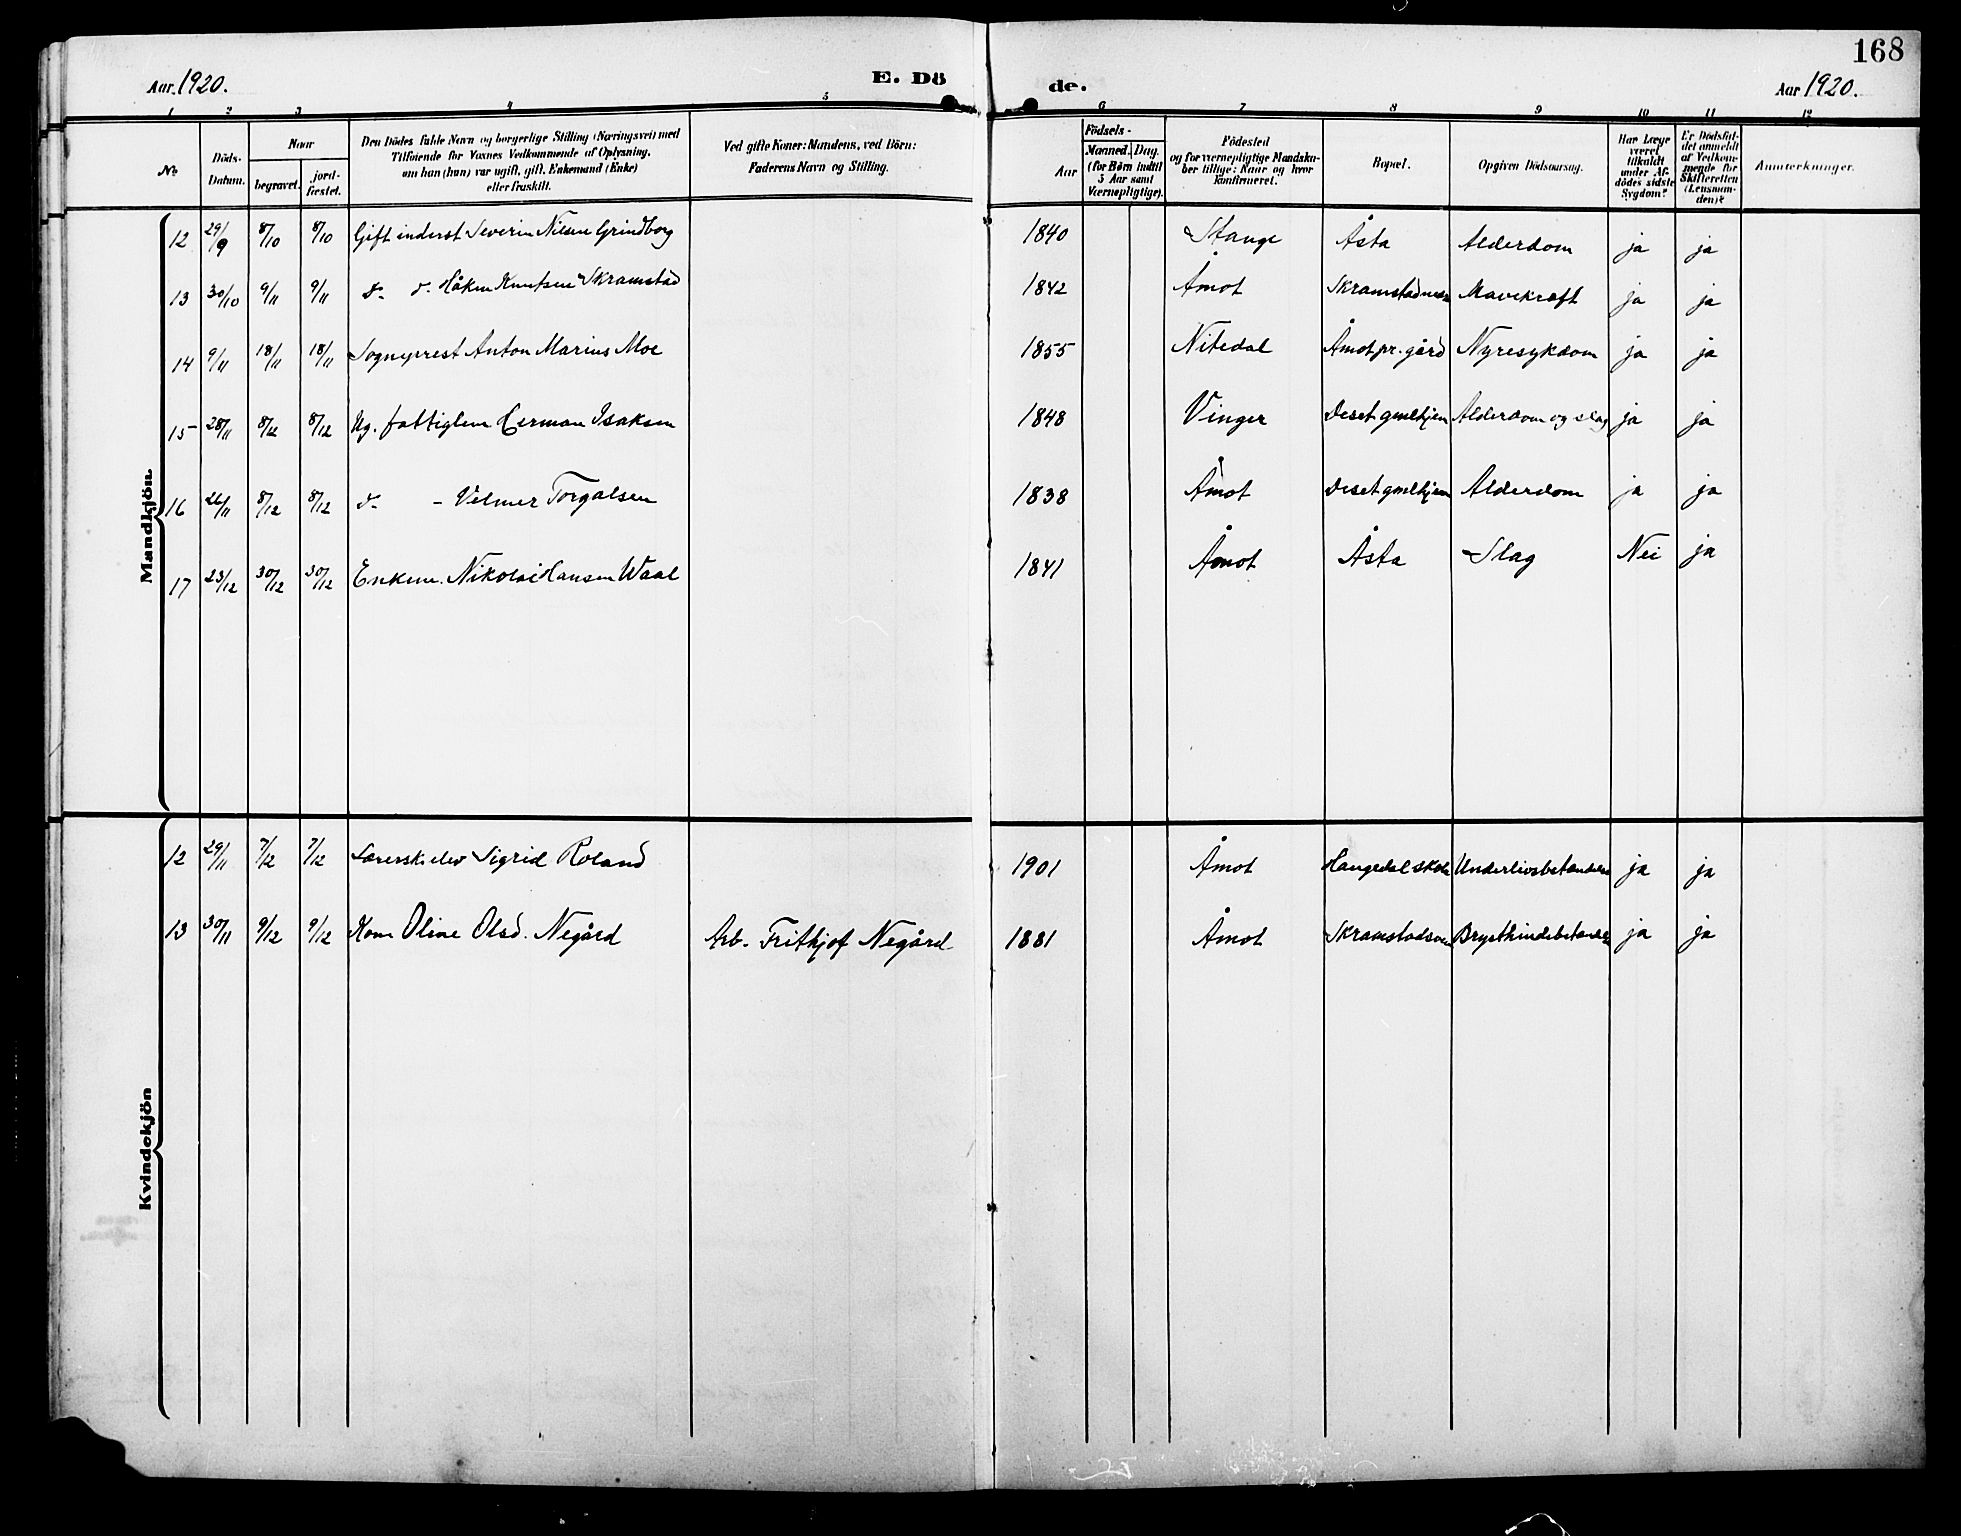 168
Aar 1920. E. Dö de. Aar 1920.
1 2 3 4 5 6 7 8 9 10 11 12
No.
Döds-
Datum.
Naar
begravet.
jord-
fæstet.
Den Dödes fulde Navn og borgerlige Stilling (Næringsvei) med
Tilföiende for Voxnes Vedkommende af Oplysning,
om han (hun) var ugift, gift, Enkemand (Enke)
eller fraskilt.
Ved gifte Koner: Mandens, ved Börn:
Faderens Navn og Stilling.
Födsels-
Aar
Maaned. Dag.
(for Börn indtil
5 Aar samt
Værnepligtige).
Födested
og for værnepligtige Mandska-
ber tillige: Naar og hvor
konfirmeret.
Bopæl.
Opgiven Dödsaarsag.
Har Læge
været
tilkaldt
under Af-
dödes sidste
Sygdom?
Er Dödsfal-
det anmeldt
af Vedkom-
mende for
Skifteretten
(Lensman-
den)?
Anmerkninger.
Mandkjön.
12 29/9 8/10 8/10 Gift inderst Severin Nilsen Grindborg 1840 Stange Åsta Alderdom ja ja
13 30/10 9/11 9/11 d. d. Håken Knutsen Skramstad 1842 Åmot Mavekræft ja ja
14 9/11 18/11 18/11 Sogneprest Anton Marius Moe 1855 Nitedal Åmot pr.gård Nyresykdom ja ja
15 28/11 8/12 8/12 Ug. fattiglem Herman Isaksen 1848 Vinger Deset gmlhjem Alderdom og slag ja ja
16 26/11 8/12 8/12 d. - Velmer Torgalsen 1838 Åmot Deset gmlhjem Alderdom ja ja
17 23/12 30/12 30/12 Enkem. Nikolai Hansen Waal 1841 Åmot Åsta Slag Nei ja
Kvindekjön
12 29/11 7/12 7/12 Lærersk.elev Sigrid Roland 1901 Åmot Haugedal skole Underlivsbetændelse ja ja
13 30/11 9/12 9/12 Kone Oline Olsd. Negård Arb. Frithjof Negård 1881 Åmot Brysthindebetændelse ja ja